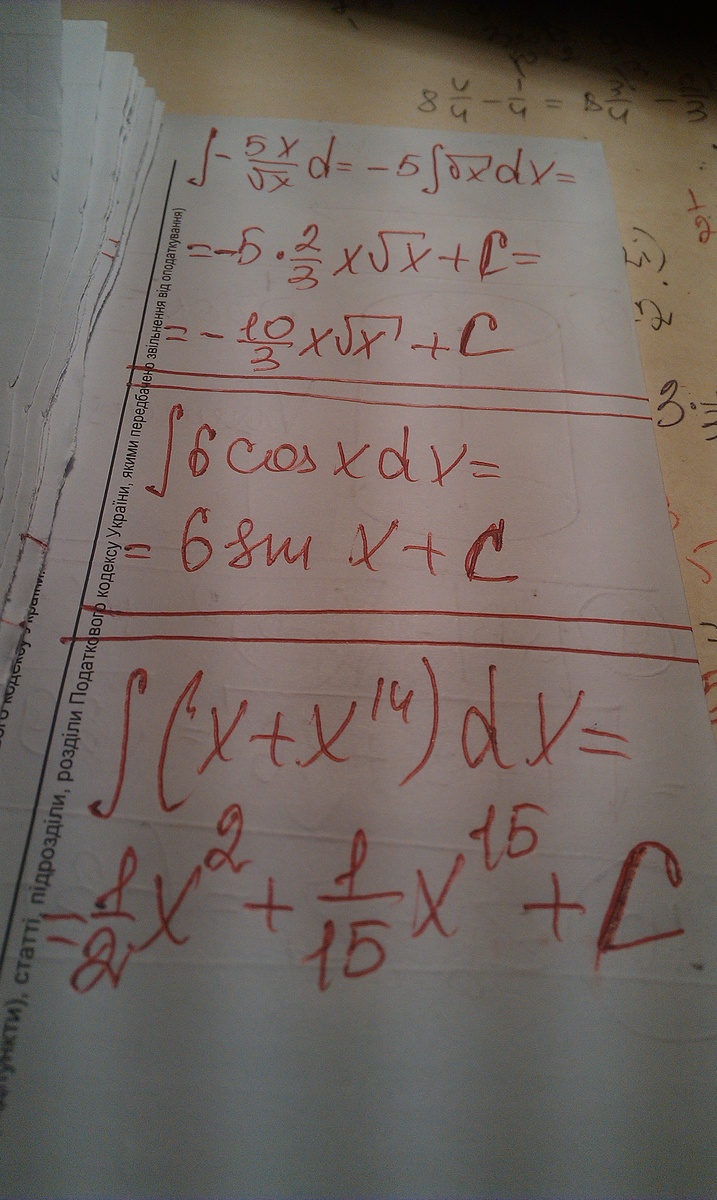 ∫ - 5x/√x d = - 5 ∫ √x dx =
= - 5 · 2/3 x √x + C =
= - 10/3 x √x + C
∫ 6 cos x dx =
= 6 sin x + C
∫ (x + x^14) dx =
= 1/2 x^2 + 1/15 x^15 + C
пункти), статті, підрозділи, розділи Податкового кодексу України, якими передбачено звільнення від оподаткування)
8 4/4 - 1/4 = 8 3/4